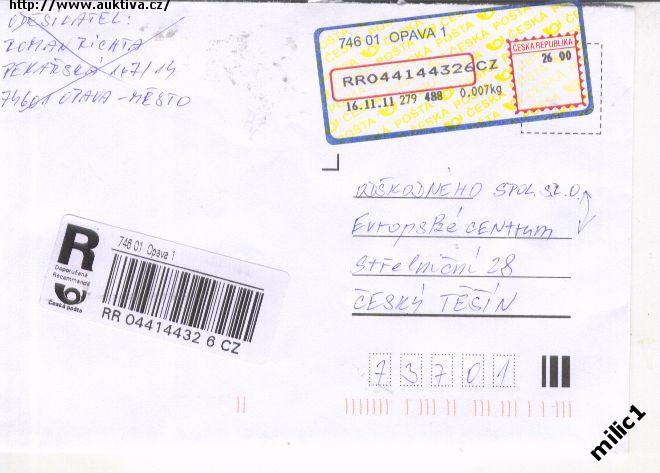 http://www.auktiva.cz/
ODESILATEL:
ROMAN RICHTA
PEKAŘSKÁ 147/14
74601 OPAVA-MĚSTO
746 01 OPAVA 1
RR044144326CZ
16.11.11 279 488 0,007kg
ČESKÁ REPUBLIKA
26 00
ČESKÁ POŠTA
R
Doporučeně
Recommandé
Česká pošta
746 01 Opava 1
RR 04414432 6 CZ
SPOL. S.R.O.
EVROPSKÉ CENTRUM
STŘELNIČNÍ 28
ČESKÝ TĚŠÍN
73701
milic1